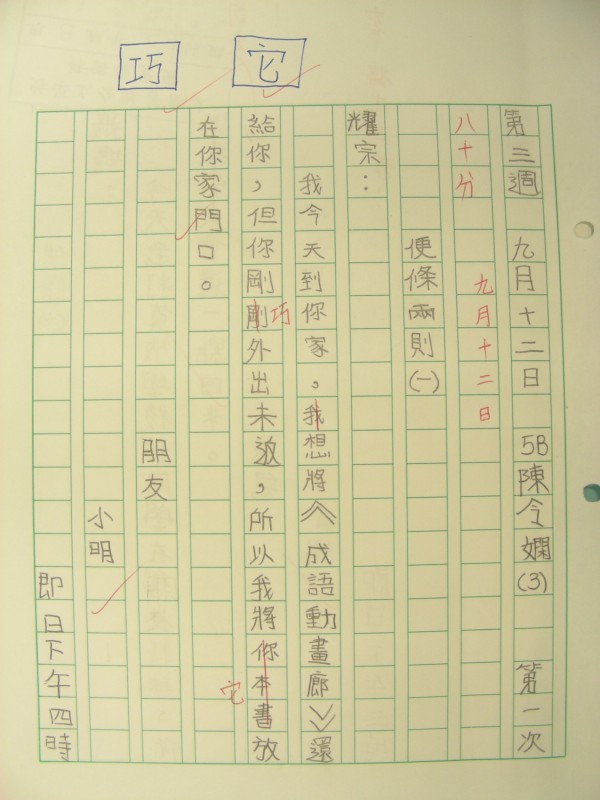 它
巧
第三週 九月十二日 5B陳令嫻(3) 第一次
八十分 九月十二日
便條兩則(一)
耀宗：
我今天到你家。我想將《成語動畫廊》還
給你，但你剛剛外出未返，所以我將你本書放
巧
它
在你家門口。
朋友
小明
即日下午四時